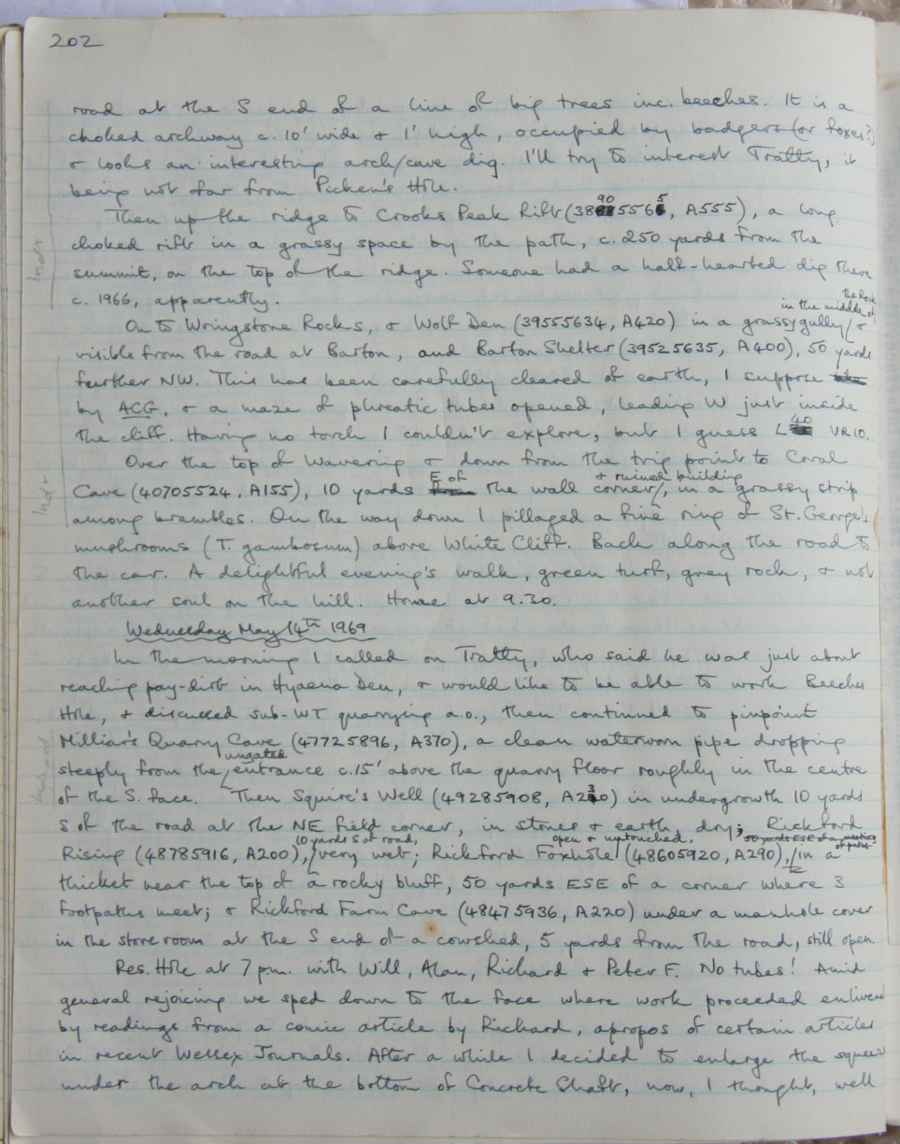 202
road at the S end of a line of big trees inc. beeches. It is a
choked archway c. 10' wide & 1' high, occupied by badgers (or foxes?),
& looks an interesting arch/cave dig. I'll try to interest Tratty, it
being not far from Picken's Hole.
Then up the ridge to Crooks Peak Rift (38905565, A555), a long
choked rift in a grassy space by the path, c. 250 yards from the
summit, on the top of the ridge. Someone had a half-hearted dig there
c. 1966, apparently.
On to Wringstone Rocks, & Wolf Den (39555634, A420) in a grassy gully / in the middle of the Rock &
visible from the road at Barton, and Barton Shelter (39525635, A400), 50 yards
further NW. This has been carefully cleared of earth, I suppose
by ACG, & a maze of phreatic tubes opened, leading W just inside
the cliff. Having no torch I couldn't explore, but I guess L40 VR10.
Over the top of Wavering & down from the trig point to Coral
Cave (40705524, A155), 10 yards E of the wall corner / & ruined building, in a grassy strip
among brambles. On the way down I pillaged a fine ring of St. George's
mushrooms (T. gambosum) above White Cliff. Back along the road to
the car. A delightful evening's walk, green turf, grey rock, & not
another soul on the hill. Home at 9.30.
Wednesday May 14th 1969
In the morning I called on Tratty, who said he was just about
reaching pay-dirt in Hyaena Den, & would like to be able to work Beeches
Hole, & discussed sub-WT quarrying a.o., then continued to pinpoint
Milliar's Quarry Cave (47725896, A370), a clean waterworn pipe dropping
steeply from the ungated entrance c. 15' above the quarry floor roughly in the centre
of the S. face. Then Squire's Well (49285908, A230) in undergrowth 10 yards
S of the road at the NE field corner, in stones & earth, dry; Rickford
Rising (48785916, A200), / 10 yards S of road, very wet; Rickford Foxhole (48605920, A290), / open & untouched, in a
thicket near the top of a rocky bluff, 50 yards ESE of a corner where 3
footpaths meet; & Rickford Farm Cave (48475936, A220) under a manhole cover
in the store room at the S end of a cowshed, 5 yards from the road, still open.
Res. Hole at 7 pm. with Will, Alan, Richard & Peter F. No tubes! Amid
general rejoicing we sped down to the face where work proceeded enlivened
by readings from a comic article by Richard, apropos of certain articles
in recent Wessex Journals. After a while I decided to enlarge the squeeze
under the arch at the bottom of Concrete Shaft, now, I thought, well